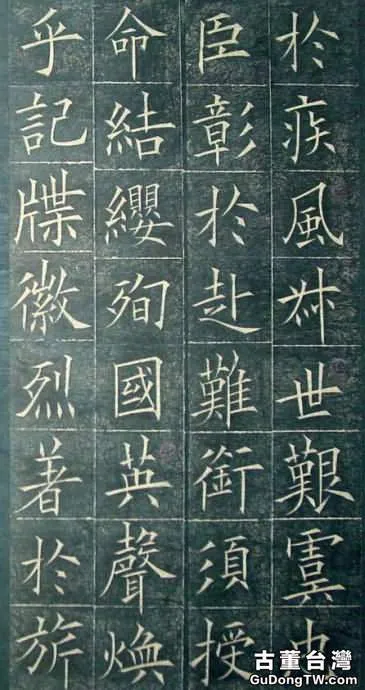 於疾風叔世艱虞忠
臣彰於赴難銜須授
命結纓殉國英聲煥
乎記牒徽烈著於旂
古董台灣
GuDongTW.com